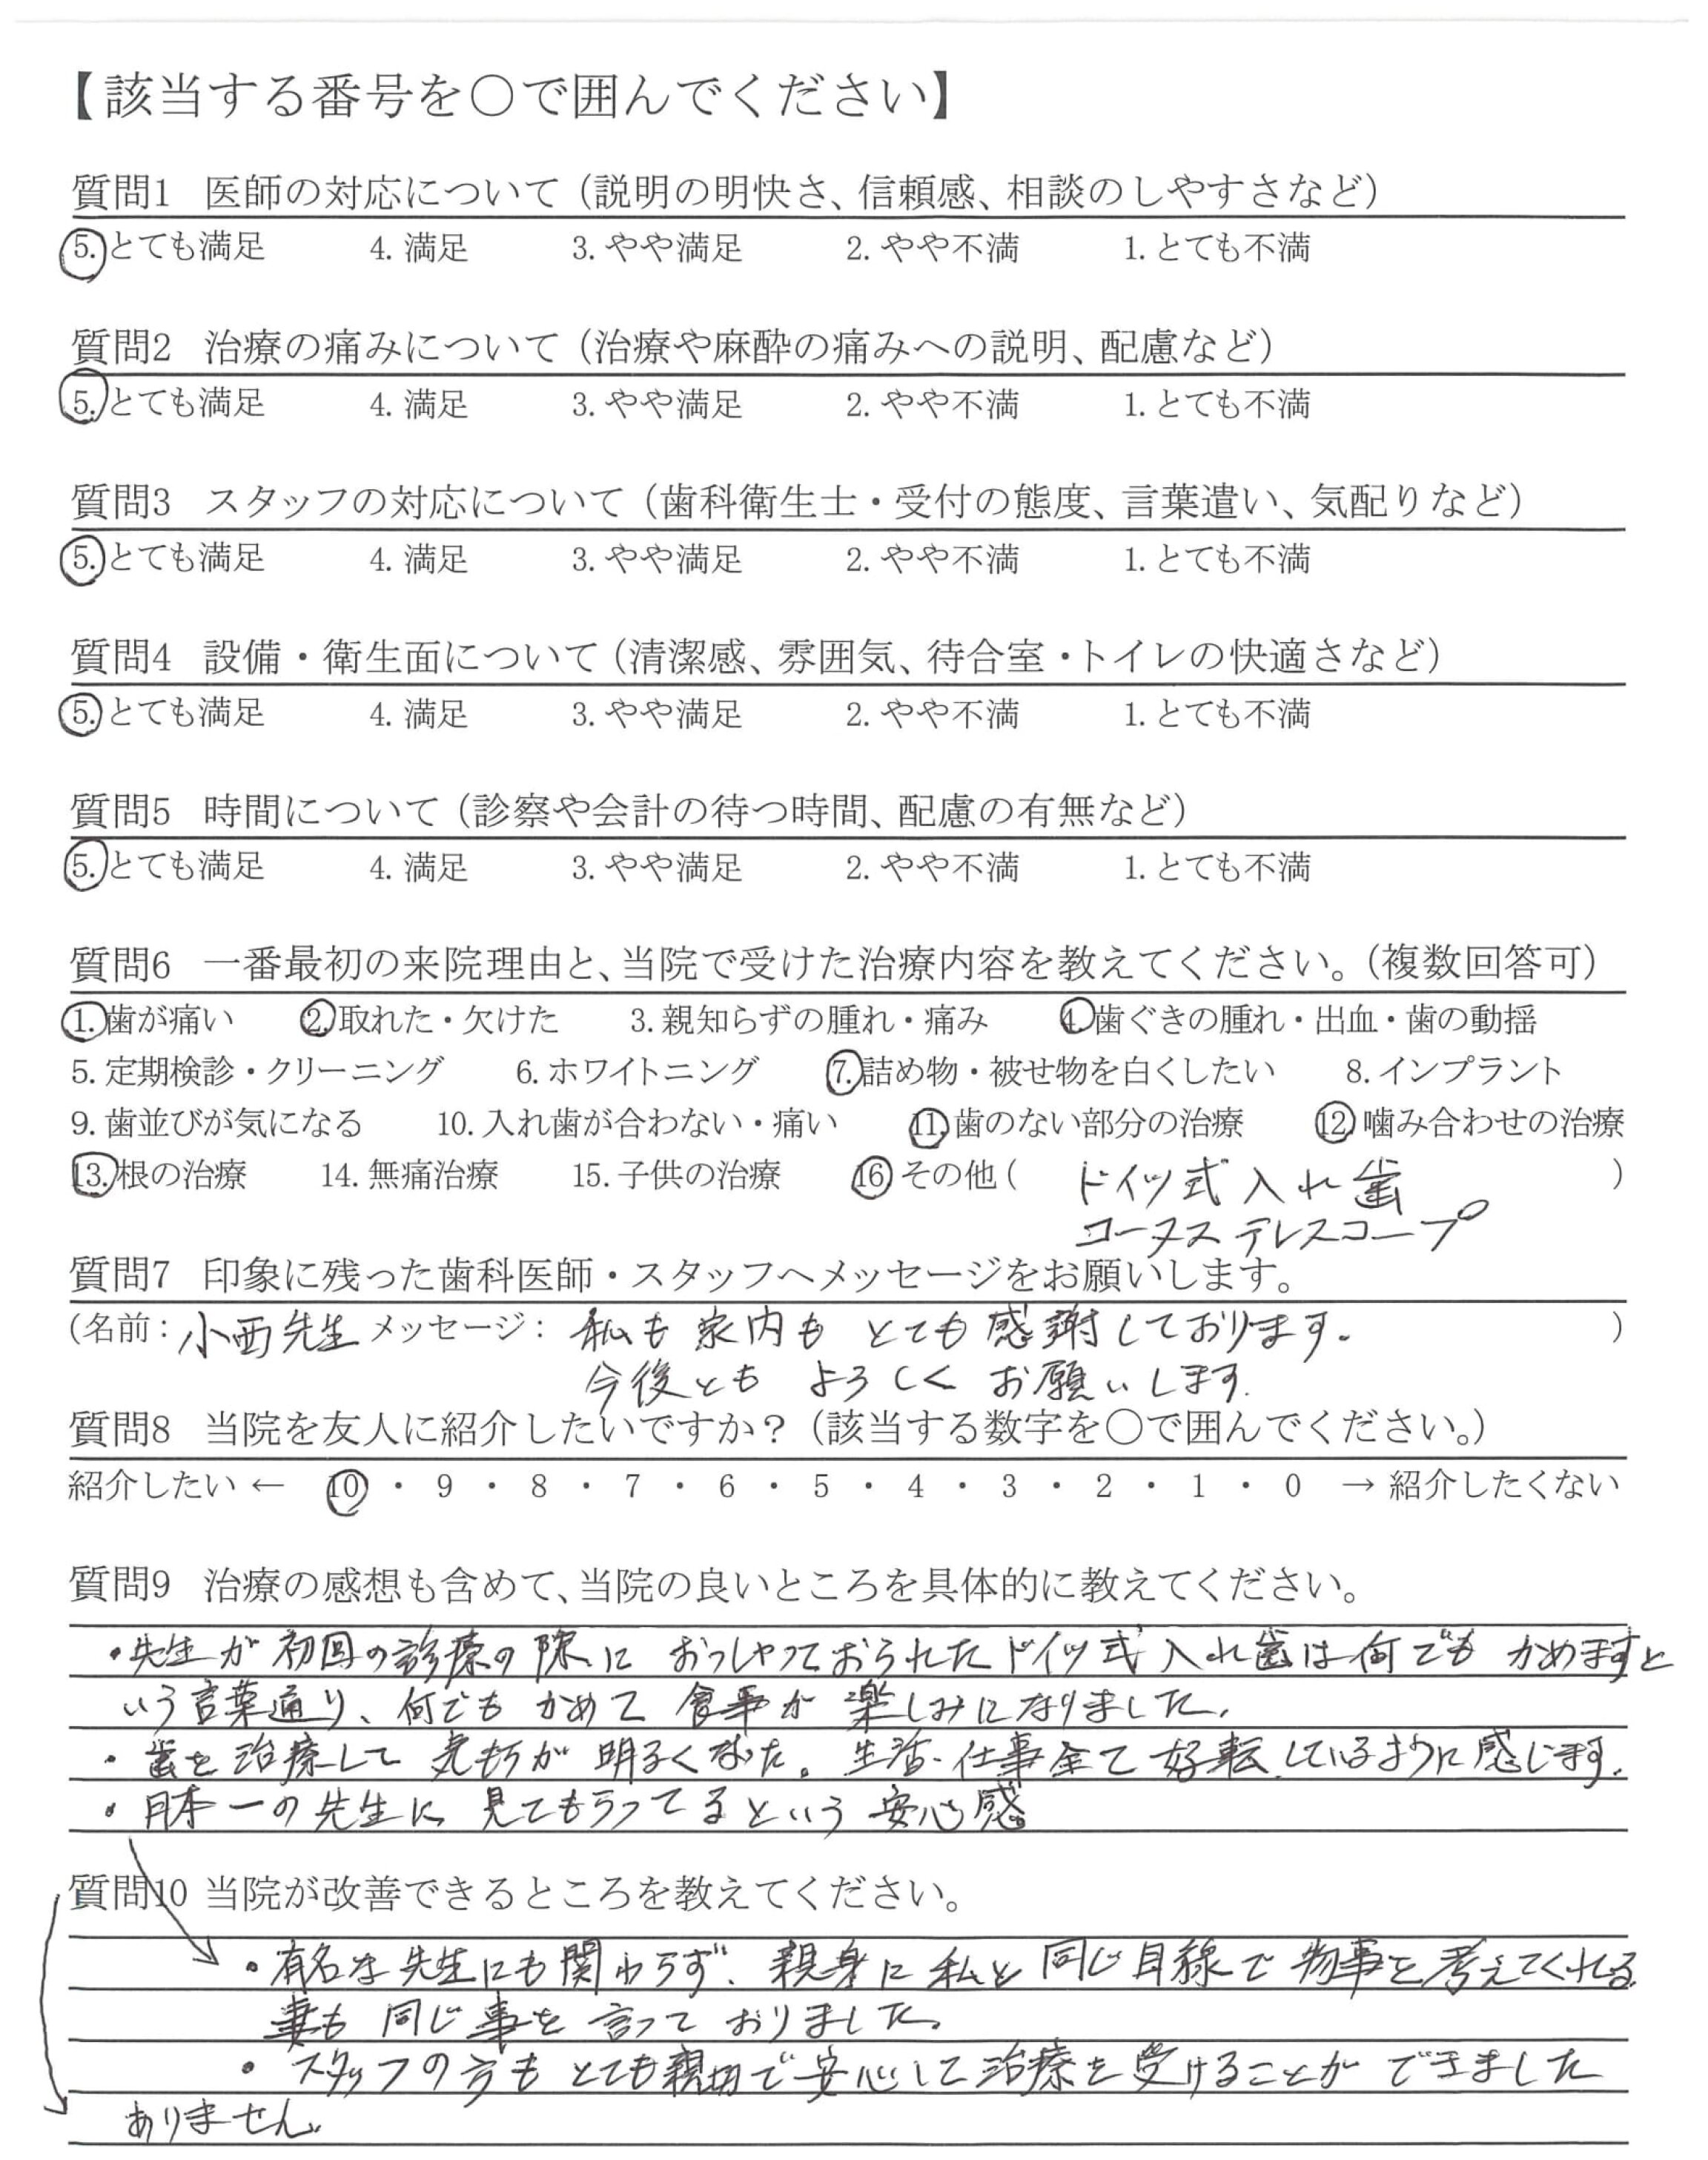 【該当する番号を○で囲んでください】
質問1 医師の対応について（説明の明快さ、信頼感、相談のしやすさなど）
5. とても満足 4. 満足 3. やや満足 2. やや不満 1. とても不満
質問2 治療の痛みについて（治療や麻酔の痛みへの説明、配慮など）
5. とても満足 4. 満足 3. やや満足 2. やや不満 1. とても不満
質問3 スタッフの対応について（歯科衛生士・受付の態度、言葉遣い、気配りなど）
5. とても満足 4. 満足 3. やや満足 2. やや不満 1. とても不満
質問4 設備・衛生面について（清潔感、雰囲気、待合室・トイレの快適さなど）
5. とても満足 4. 満足 3. やや満足 2. やや不満 1. とても不満
質問5 時間について（診察や会計の待つ時間、配慮の有無など）
5. とても満足 4. 満足 3. やや満足 2. やや不満 1. とても不満
質問6 一番最初の来院理由と、当院で受けた治療内容を教えてください。（複数回答可）
1. 歯が痛い 2. 取れた・欠けた 3. 親知らずの腫れ・痛み 4. 歯ぐきの腫れ・出血・歯の動揺
5. 定期検診・クリーニング 6. ホワイトニング 7. 詰め物・被せ物を白くしたい 8. インプラント
9. 歯並びが気になる 10. 入れ歯が合わない・痛い 11. 歯のない部分の治療 12. 噛み合わせの治療
13. 根の治療 14. 無痛治療 15. 子供の治療 16. その他（ ドイツ式入れ歯 ）
コーヌステレスコープ
質問7 印象に残った歯科医師・スタッフへメッセージをお願いします。
（名前：小西先生 メッセージ： 私も家内もとても感謝しております。 ）
今後ともよろしくお願いします.
質問8 当院を友人に紹介したいですか？（該当する数字を○で囲んでください。）
紹介したい ← 10 ・ 9 ・ 8 ・ 7 ・ 6 ・ 5 ・ 4 ・ 3 ・ 2 ・ 1 ・ 0 → 紹介したくない
質問9 治療の感想も含めて、当院の良いところを具体的に教えてください。
・先生が初回の診療の際におっしゃっておられたドイツ式入れ歯は何でもかめますと
いう言葉通り、何でもかめて食事が楽しみになりました。
・歯を治療して気持が明るくなった。生活・仕事全て好転しているように感じます。
・日本一の先生に見てもらってるという安心感
質問10 当院が改善できるところを教えてください。
・有名な先生にも関わらず、親身に私と同じ目線で物事を考えてくれる
妻も同じ事を言っておりました。
・スタッフの方もとても親切で安心して治療を受けることができました
ありません。